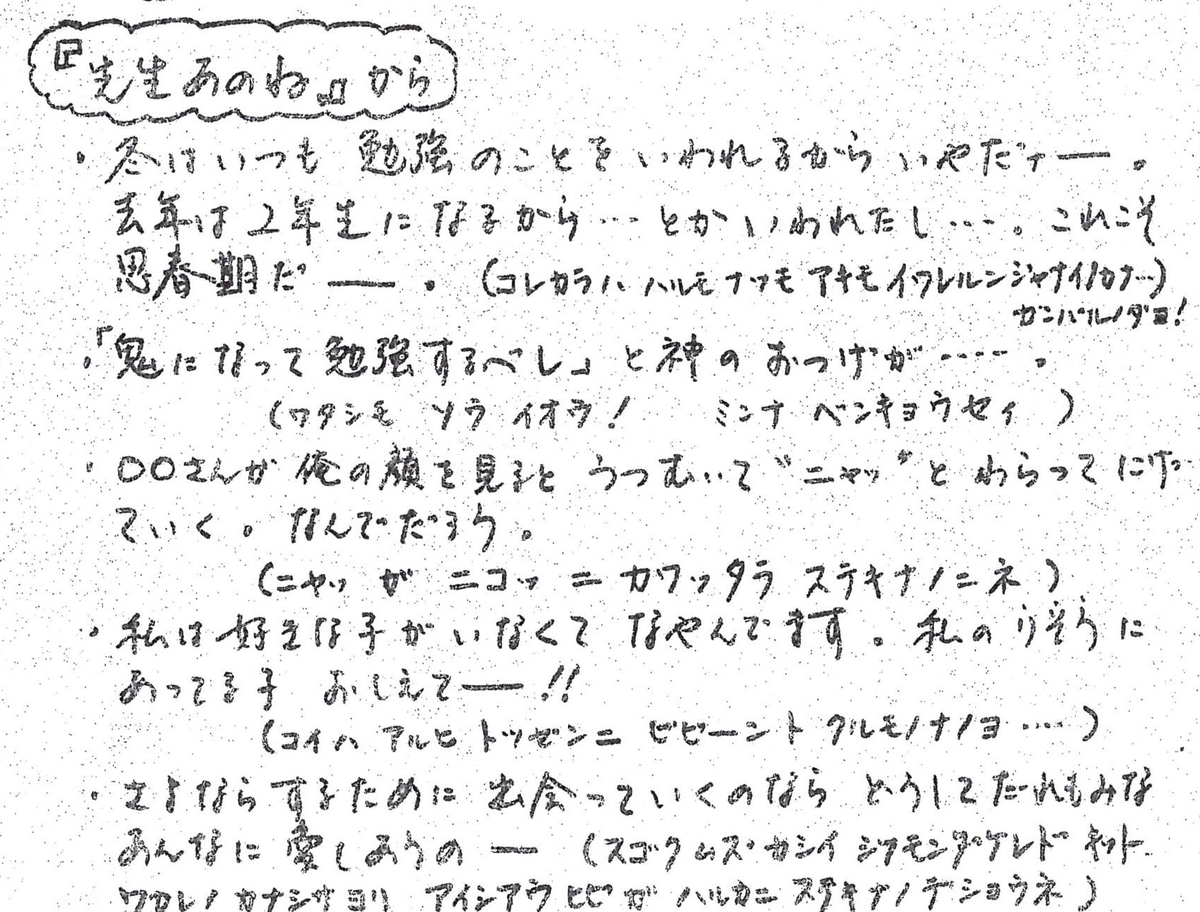 『先生あのね』から
・冬はいつも 勉強のことをいわれるから いやだァー。
去年は2年生になるから…とかいわれたし…。これこそ
思春期だー。(コレカラハ ハルモナツモアキモイワレルンジャナイノカナー)
ガンバルノダヨ!
・「鬼になって勉強するべし」と神のおつげが‥‥。
(ワタシモ ソウ イオウ! ミンナ ベンキョウセイ)
・〇〇さんが俺の顔を見ると うつむいて“ニャッ”と わらって にげ
ていく。なんでだろう。
(ニャッ ガ ニコッ ニ カワッタラ ステキナノニネ)
・私は好きな子がいなくて なやんでます。私のりそうに
あってる子 おしえてー!!
(コイハ アルヒ トツゼンニ ビビーント クルモノナノヨ‥‥)
・さよならするために 出会っていくのなら どうしてだれもみな
あんなに愛しあうの ー (スゴクムズカシイ シツモンダケレド キット
ワカレノ カナシサヨリ アイシアウヒビガ ハルカニ ステキナノデショウネ)